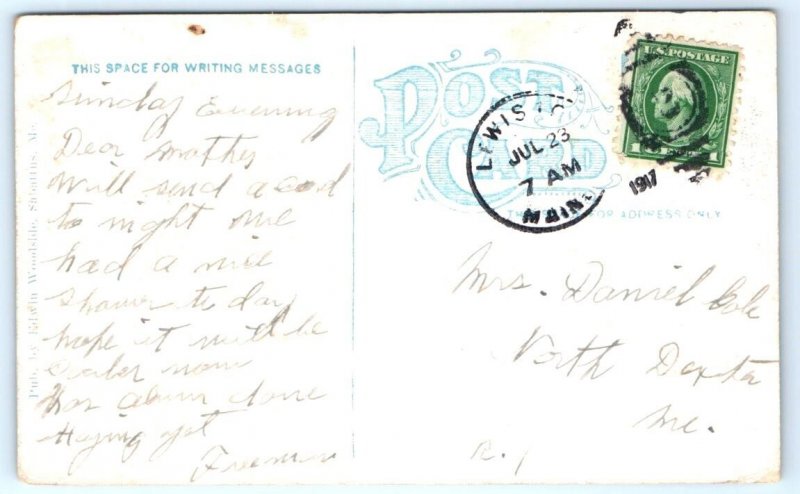 THIS SPACE FOR WRITING MESSAGES
POST CARD
U.S. POSTAGE
LEWISTO
JUL 23
7 AM
MAINE
1917
FOR ADDRESS ONLY
Sunday Evening
Dear Mother
Will send a card
to night We
had a nice
shower to day
hope it will be
cooler now
Has alvin done
Haying yet
Freeman
Mrs. Daniel Cole
North Dexter
Me.
R. 1
Pub. by Edwin Woodside, Sabattus, Me.